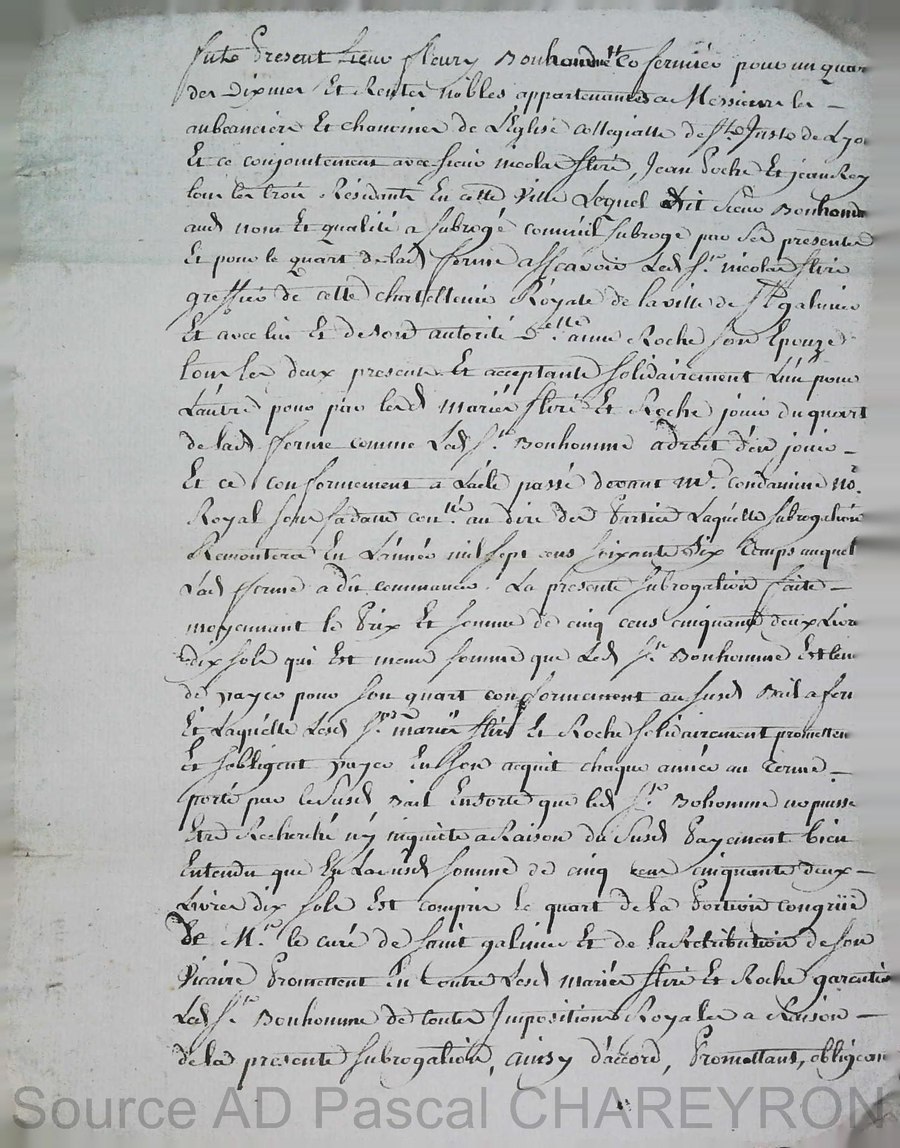 fute Present sieur fleury Bonhomme Co fermier pour un quar
des Dixmes Et Rentes nobles appartenantes a Messieurs les –
aubeanciers Et chanoines de L'Eglise collegialle de St Juste de Lyo
Et ce conjointement avec sieur nicolas Stiré, Jean Poche Et jean Rey
tous les trois Résidants En cette ville Lequel dit sieur Bonhomm
aud nom Et qualité a subrogé comme il subroge par ses presentes
Et pour le quart de lad ferme assçavoir Led Sr. nicolas Stiré
greffier de cette chatellenie Royale de la ville de St galmier
Et avec lui Et de son autorité Delle. anne Roche son Epouze
tous les deux presents Et acceptants solidairement L'un pour
L'autre pour par lesd mariés Stiré Et Roche jouir du quart
de lad ferme comme Led Sr. Bonhomme a droit d'en jouir –
Et ce conformement a L'acte passé devant Me. Condamine no.
Royal sous sa datte con.té au dire des Parties Laquelle subrogation
Remontera En L'année mil sept cens soixante Dix temps auquel
Lad ferme a dû commencer. La presente subrogation faite –
moyennant le Prix Et somme de cinq cens cinquante deux Livre
dix sols qui Est meme somme que Led Sr. Bonhomme Est ten
de payer pour son quart conformement au susd Bail a fer
Et Laquelle Lesd Srs. mariés Stiré Et Roche solidairement prometten
Et s'obligent payer En son acquit chaque année au Terme –
porté par le susd Bail Ensorte que led Sr. Bohomme ne puisse
Etre Recherché n'y inquiété a Raison du susd Payement bien
Entendu que En La susd somme de cinq cens cinquante deux –
Livres dix sols Est compris le quart de la Portion congrüe
de Mr. le curé de saint galmier Et de la Retribution de son
vicaire Promettent En outre Lesd mariés Stiré Et Roche garentir
Led Sr. Bonhomme de toutes Impositions Royales a Raison –
de la presente subrogation, ainsy d'accord, Promettans, obligean
Source AD Pascal CHAREYRON